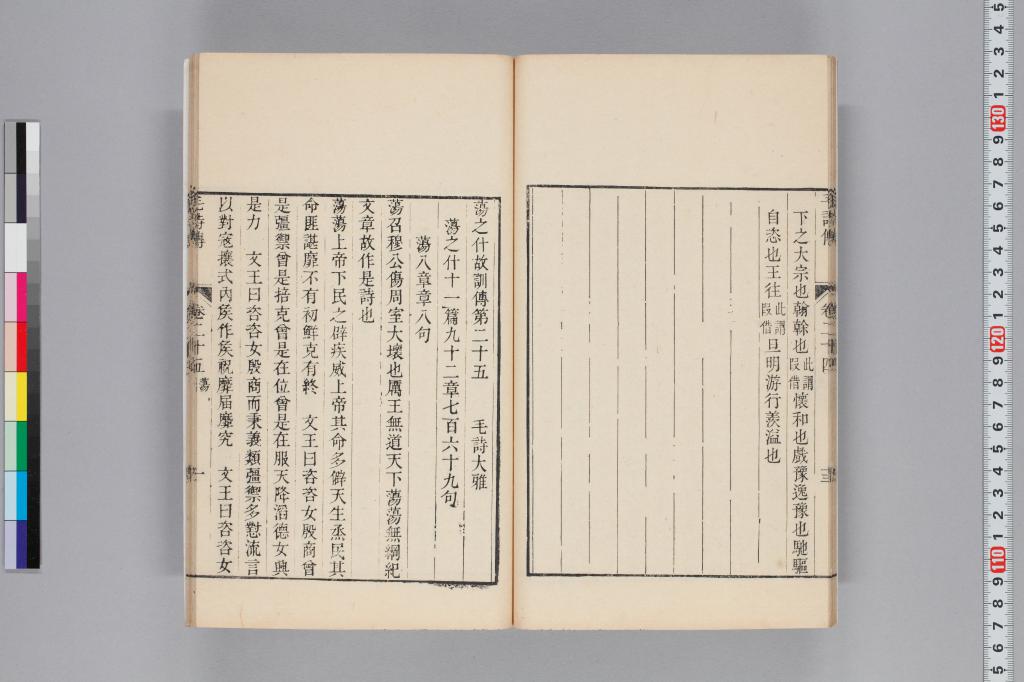 毛詩傳 卷二十四 三
下之大宗也翰榦也此謂叚借懷和也戲豫逸豫也馳驅
自恣也王往此謂叚借旦明游行羨溢也
蕩之什故訓傳第二十五 毛詩大雅
蕩之什十一篇九十二章七百六十九句
蕩八章章八句
蕩召穆公傷周室大壞也厲王無道天下蕩蕩無綱紀
文章故作是詩也
蕩蕩上帝下民之辟疾威上帝其命多僻天生烝民其
命匪諶靡不有初鮮克有終 文王曰咨咨女殷商曾
是彊禦曾是掊克曾是在位曾是在服天降滔德女興
是力 文王曰咨咨女殷商而秉義類彊禦多懟流言
以對寇攘式內矦作矦祝靡届靡究 文王曰咨咨女
毛詩傳 卷二十五 蕩 一
5
4
3
2
1
130
9
8
7
6
5
4
3
2
1
120
9
8
7
6
5
4
3
2
1
110
9
8
7
6
5